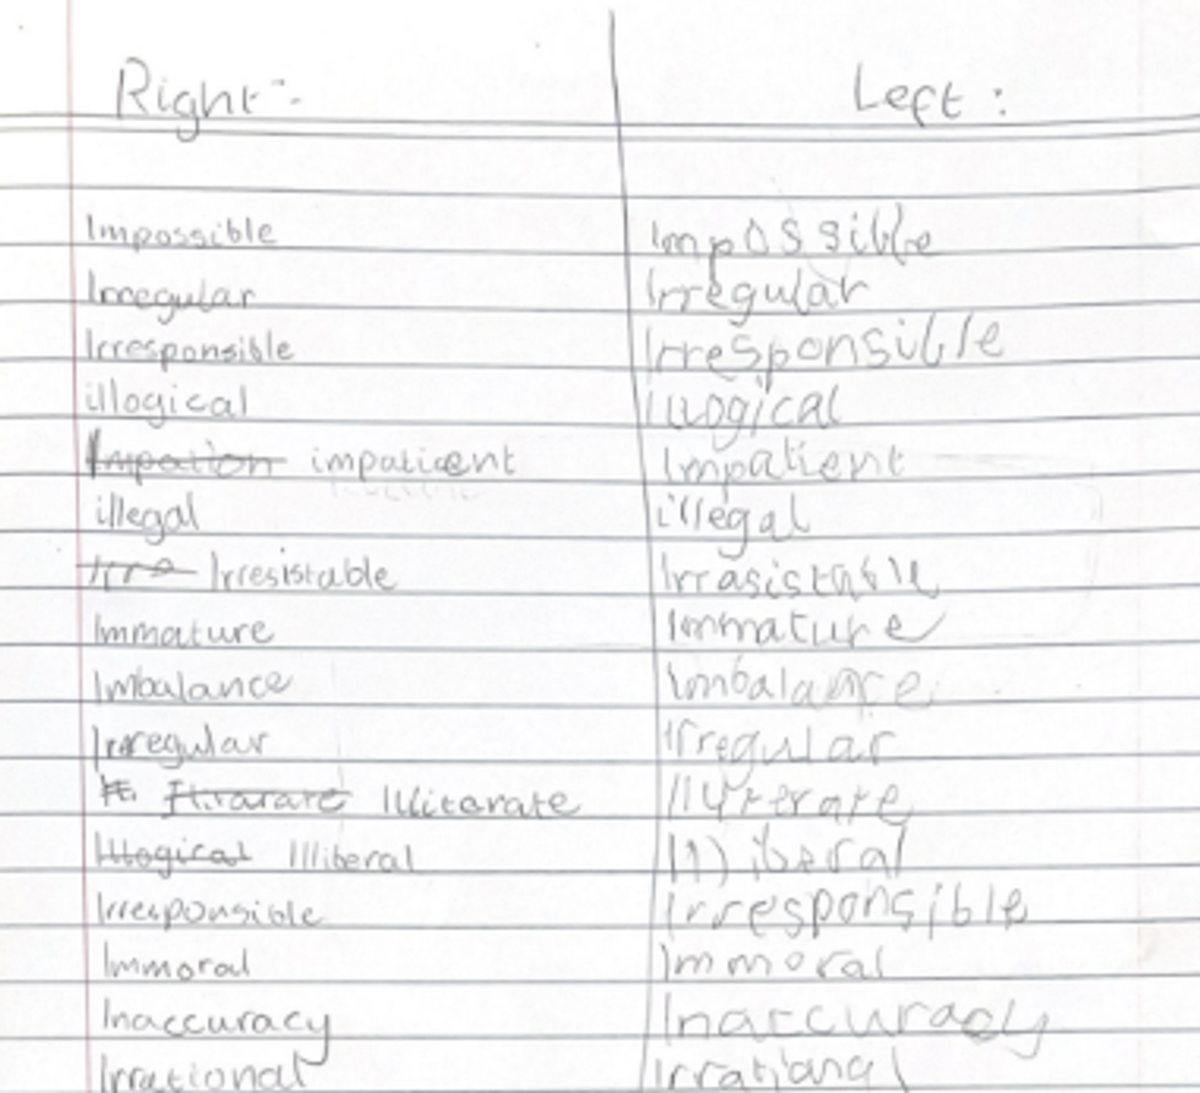 Right:- Left:
Impossible Impossible
Irregular Irregular
Irresponsible Irresponsible
illogical illogical
Impation impaticent Impatient
illegal illegal
Irre Irresistable Irrasistable
Immature Immature
Imbalance Imbalance
Irregular Irregular
Illiterate Illiterate
Illogical Illiberal Illiberal
Irresponsible Irresponsible
Immoral Immoral
Inaccuracy Inaccuracy
Irrational Irrational